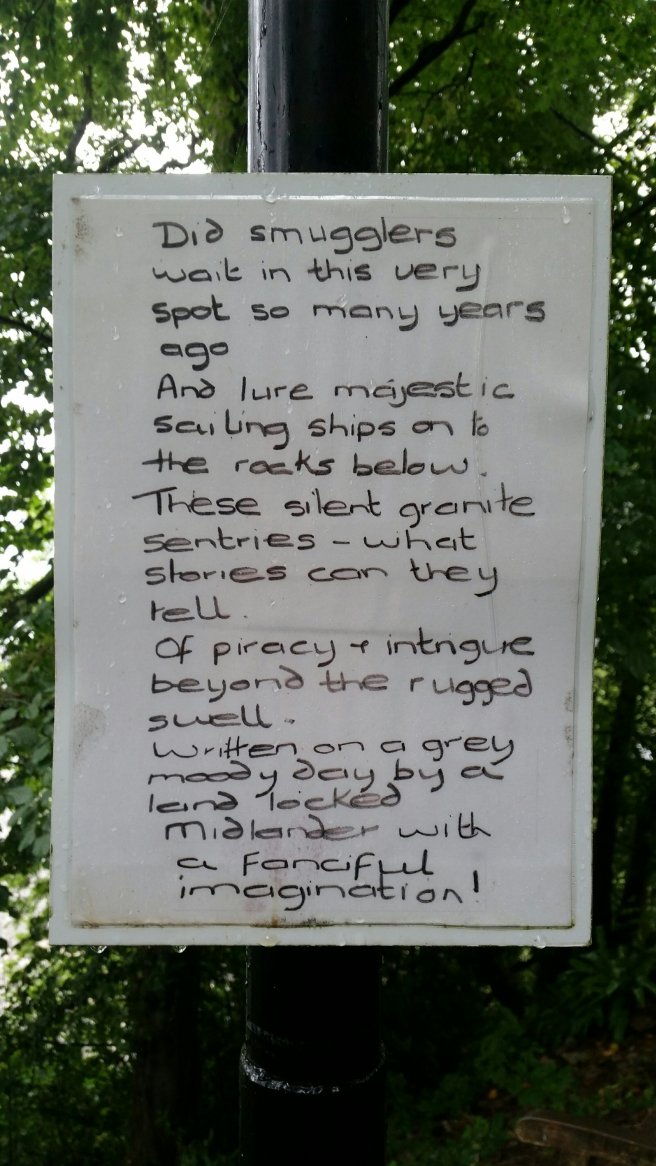 Did smugglers
wait in this very
spot so many years
ago
And lure majestic
sailing ships on to
the rocks below.
These silent granite
sentries - what
stories can they
tell.
Of piracy + intrigue
beyond the rugged
swell.
Written on a grey
moody day by a
land locked
Midlander with
a fanciful
imagination!